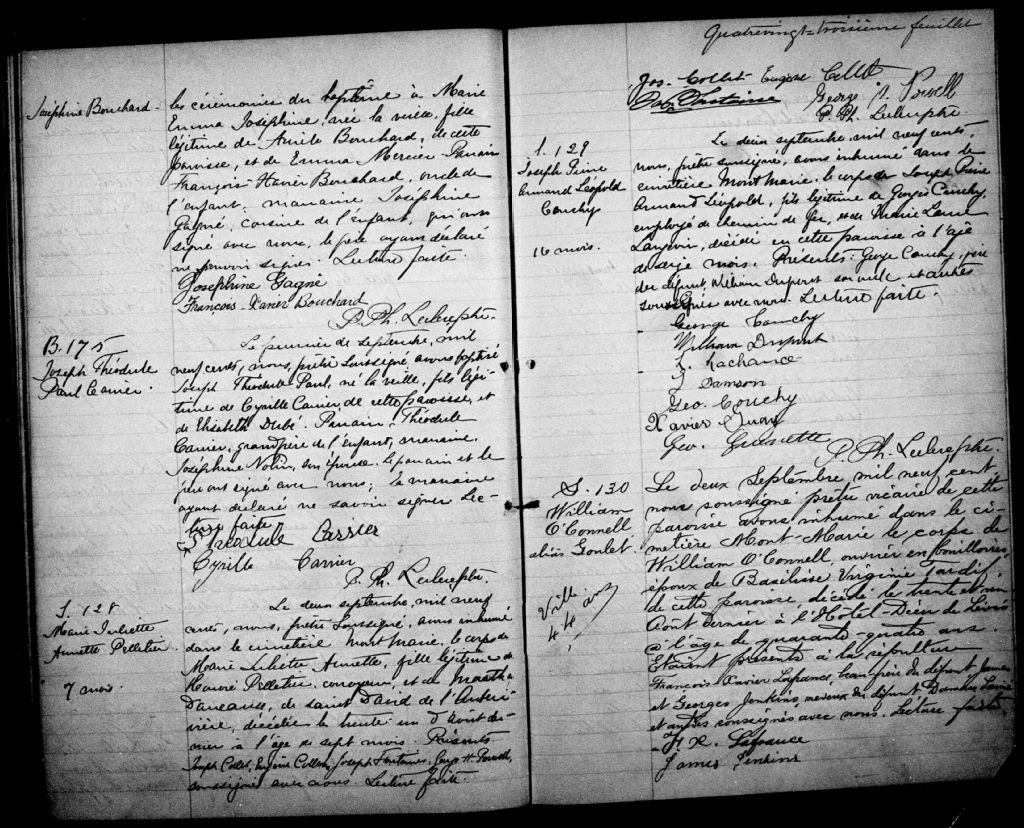 Joséphine Bouchard
les cérémonies du baptême à Marie
Emma Joséphine, née la veille, fille
légitime de Bouchard, de cette
paroisse, et de Emma Mercier Parrain
François-Xavier Bouchard, oncle de
l'enfant, marraine Joséphine
Gagné, cousine de l'enfant, qui ont
signé avec nous, le père ayant déclaré
ne pouvoir signer. Lecture faite.
Josephine Gagné
François Xavier Bouchard
P. Ph.
B. 175
Joseph Théodule
Paul Carrier.
Le premier de septembre, mil
neuf cents, nous, prêtre soussigné avons baptisé
Joseph Théodule Paul, né la veille, fils légi-
time de Cyrille Carrier, de cette paroisse, et
de Elisabeth Dubé. Parrain, Théodule
Carrier, grand'père de l'enfant, marraine,
Joséphine Nolin, son épouse. Le parrain et le
père ont signé avec nous; la marraine
ayant déclaré ne savoir signer Lec-
ture faite
Theodule Carrier
Cyrille Carrier
P. Ph.
S. 128
Marie Juliette
Annette Pelletier
7 mois.
Le deux septembre, mil neuf
cents, nous, prêtre soussigné, avons inhumé
dans le cimetière Mont Marie, le corps de
Marie Juliette Annette, fille légitime de
Honoré Pelletier, corroyeur, et de
de Saint David de l'Auberi-
vière, décédée le trente un d'Août der-
nier à l'âge de sept mois. Présents
Joseph Collet, Eugène Collet, Joseph Fontaine, George H. Powell,
soussignés avec nous. Lecture faite.
Quatrevingt-troisième feuillet
Jos. Collet Eugène Collet
Fontaine George H. Powell
P. Ph.
S. 129
Joseph Pierre
Armand Léopold
Couchy
16 mois.
Le deux septembre, mil neuf cents,
nous, prêtre soussigné, avons inhumé dans le
cimetière Mont Marie, le corps de Joseph Pierre
Armand Léopold, fils légitime de Georges Couchy,
employé de chemin de fer, et de Marie
Langevin, décédé en cette paroisse à l'âge
de seize mois. Présents: George Couchy, père
du défunt, William Dupont et autres
soussignés avec nous. Lecture faite.
George Couchy
William Dupont
Lachance
J Samson
Geo. Couchy
Xavier
Geo.
P. Ph.
S. 130
William
O'Connell
aliàs Goulet.
Ville
44 ans
Le deux Septembre mil neuf cent,
nous soussigné prêtre vicaire de cette
paroisse avons inhumé dans le ci-
metière Mont-Marie le corps de
William O'Connell, ouvrier en bouilloires,
époux de Basilisse Virginie Tardif,
de cette paroisse décédé le trente et un
Août dernier à l'Hôtel-Dieu de Lévis
à l'âge de quarante-quatre ans
Etaient présents à la sépulture
François Xavier Lafrance, beau frère du défunt, James
et Georges Jenkins, neveux du défunt, Damase
et autres soussignés avec nous. Lecture faite
F X. Lafrance
James Jenkins